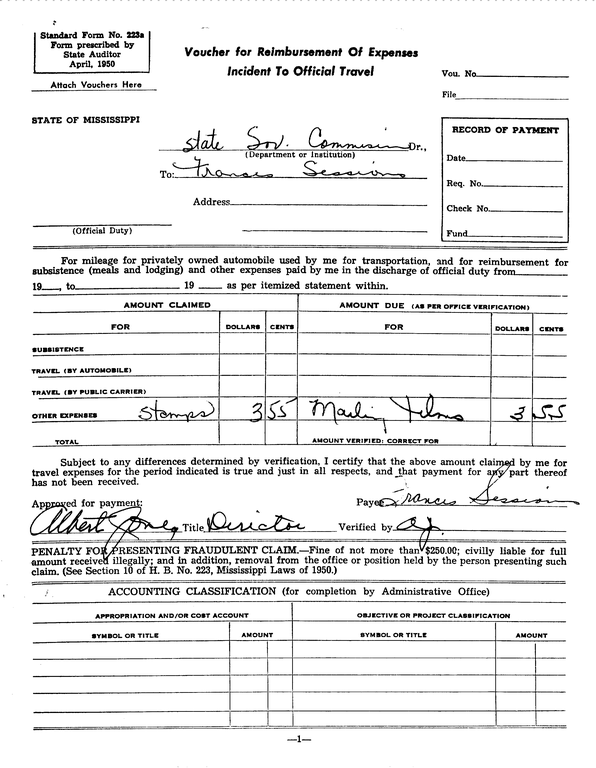 Standard Form No. 223a
Form prescribed by
State Auditor
April, 1950
Attach Vouchers Here
Voucher for Reimbursement Of Expenses
Incident To Official Travel
Vou. No.
File
STATE OF MISSISSIPPI
State Sov. Commission Dr.,
(Department or Institution)
To: Francis Sessions
Address
(Official Duty)
RECORD OF PAYMENT
Date
Req. No.
Check No.
Fund
For mileage for privately owned automobile used by me for transportation, and for reimbursement for
subsistence (meals and lodging) and other expenses paid by me in the discharge of official duty from
19___, to___ 19 ___ as per itemized statement within.
AMOUNT CLAIMED AMOUNT DUE (AS PER OFFICE VERIFICATION)
FOR DOLLARS CENTS FOR DOLLARS CENTS
SUBSISTENCE
TRAVEL (BY AUTOMOBILE)
TRAVEL (BY PUBLIC CARRIER)
OTHER EXPENSES Stamps 3 55 Mailing films 3 55
TOTAL AMOUNT VERIFIED: CORRECT FOR
Subject to any differences determined by verification, I certify that the above amount claimed by me for
travel expenses for the period indicated is true and just in all respects, and that payment for any part thereof
has not been received.
Approved for payment: Payee Francis Session
Albert Jones Title Director Verified by aj.
PENALTY FOR PRESENTING FRAUDULENT CLAIM.—Fine of not more than $250.00; civilly liable for full
amount received illegally; and in addition, removal from the office or position held by the person presenting such
claim. (See Section 10 of H. B. No. 223, Mississippi Laws of 1950.)
ACCOUNTING CLASSIFICATION (for completion by Administrative Office)
APPROPRIATION AND/OR COST ACCOUNT OBJECTIVE OR PROJECT CLASSIFICATION
SYMBOL OR TITLE AMOUNT SYMBOL OR TITLE AMOUNT
—1—